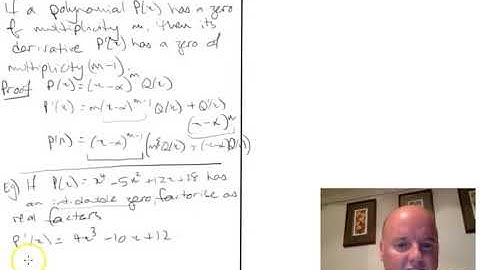 If a polynomial P(x) has a zero
of multiplicity m, then its
derivative P'(x) has a zero of
multiplicity (m-1).
Proof P(x) = (x-α)^m Q(x)
P'(x) = m(x-α)^{m-1} Q(x) + Q'(x)
(x-α)^m
P'(x) = (x-α)^{m-1} (mQ(x) + (x-α)Q'(x))
Eg) If P(x) = x⁴ - 5x² + 12x + 28 has
an integer double zero, factorise as
real factors
P'(x) = 4x³ - 10x + 12